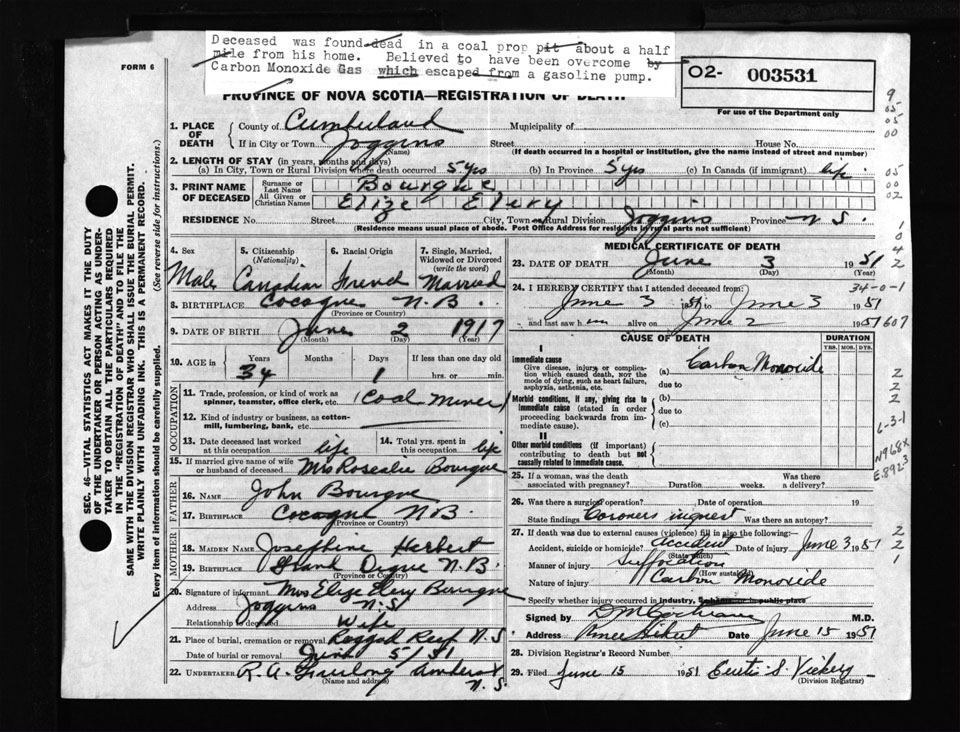 Deceased was found dead in a coal prop pit about a half
mile from his home. Believed to have been overcome by
Carbon Monoxide Gas which escaped from a gasoline pump.
FORM 6
O2- 003531
For use of the Department only
PROVINCE OF NOVA SCOTIA—REGISTRATION OF DEATH
1. PLACE OF DEATH
County of Cumberland Municipality of
If in City or Town Joggins Street House No.
(Name) (If death occurred in a hospital or institution, give the name instead of street and number)
2. LENGTH OF STAY (in years, months and days)
(a) In City, Town or Rural Division where death occurred 5 yrs (b) In Province 5 yrs (c) In Canada (if immigrant) life
3. PRINT NAME OF DECEASED
Surname or Last Name Bourque
All Given or Christian Names Elize Elery
RESIDENCE No. Street City, Town or Rural Division Joggins Province N.S.
(Residence means usual place of abode. Post Office Address for residents in rural parts not sufficient)
4. Sex 5. Citizenship (Nationality) 6. Racial Origin 7. Single, Married, Widowed or Divorced (write the word)
Male Canadian French Married
8. BIRTHPLACE Cocagne N.B.
(Province or Country)
9. DATE OF BIRTH June 2 1917
(Month) (Day) (Year)
10. AGE in Years Months Days If less than one day old
34 1 hrs. or min.
OCCUPATION
11. Trade, profession, or kind of work as spinner, teamster, office clerk, etc. (Coal Miner)
12. Kind of industry or business, as cotton-mill, lumbering, bank, etc.
13. Date deceased last worked at this occupation life 14. Total yrs. spent in this occupation life
15. If married give name of wife or husband of deceased Mrs Rosealie Bourque
FATHER
16. NAME John Bourque
17. BIRTHPLACE Cocagne N.B.
(Province or Country)
MOTHER
18. MAIDEN NAME Josephine Herbert
19. BIRTHPLACE Grand Digue N.B.
(Province or Country)
20. Signature of informant Mrs Elize Elery Bourque
Address Joggins N.S.
Relationship to deceased Wife
21. Place of burial, cremation or removal Ragged Reef N.S
Date of burial or removal June 5/51
22. UNDERTAKER R.A. Amherst N.S.
(Name and address)
MEDICAL CERTIFICATE OF DEATH
23. DATE OF DEATH June 3 1951
(Month) (Day) (Year)
24. I HEREBY CERTIFY that I attended deceased from:
June 3 1951 to June 3 1951
and last saw him alive on June 2 1951
CAUSE OF DEATH DURATION
YRS. MOS. DYS.
I
Immediate cause
Give disease, injury or complication which caused death, NOT the mode of dying, such as heart failure, asphyxia, asthenia, etc.
(a) Carbon Monoxide
due to
Morbid conditions, if any, giving rise to immediate cause (stated in order proceeding backwards from immediate cause).
(b)
due to
(c)
II
Other morbid conditions (if important) contributing to death but not causally related to immediate cause.
25. If a woman, was the death associated with pregnancy? Duration weeks. Was there a delivery?
26. Was there a surgical operation? Date of operation 19
State findings Coroners inquest Was there an autopsy?
27. If death was due to external causes (violence) fill in also the following:—
Accident, suicide or homicide? Accident Date of injury June 3 1951
(State which)
Manner of injury Suffocation
(How sustained)
Nature of injury Carbon Monoxide
Specify whether injury occurred in industry, in home or in public place
Signed by D M Cochrane M.D.
Address Date June 15 1951
28. Division Registrar's Record Number
29. Filed June 15 1951 Curtis S. Vickery
(Division Registrar)
SEC. 46—VITAL STATISTICS ACT MAKES IT THE DUTY
OF THE UNDERTAKER OR PERSON ACTING AS UNDER-
TAKER TO OBTAIN ALL THE PARTICULARS REQUIRED
IN THE "REGISTRATION OF DEATH" AND TO FILE THE
SAME WITH THE DIVISION REGISTRAR WHO SHALL ISSUE THE BURIAL PERMIT.
WRITE PLAINLY WITH UNFADING INK. THIS IS A PERMANENT RECORD.
Every item of information should be carefully supplied. (See reverse side for instructions.)
9
05
05
00
05
00
02
1
0
4
2
34-0-1
607
2
2
2
6-3-1
N968X
E8923
2
2
1